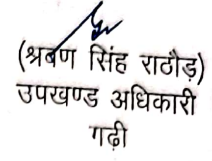 (श्रवण सिंह राठौड़)
उपखण्ड अधिकारी
गढ़ी